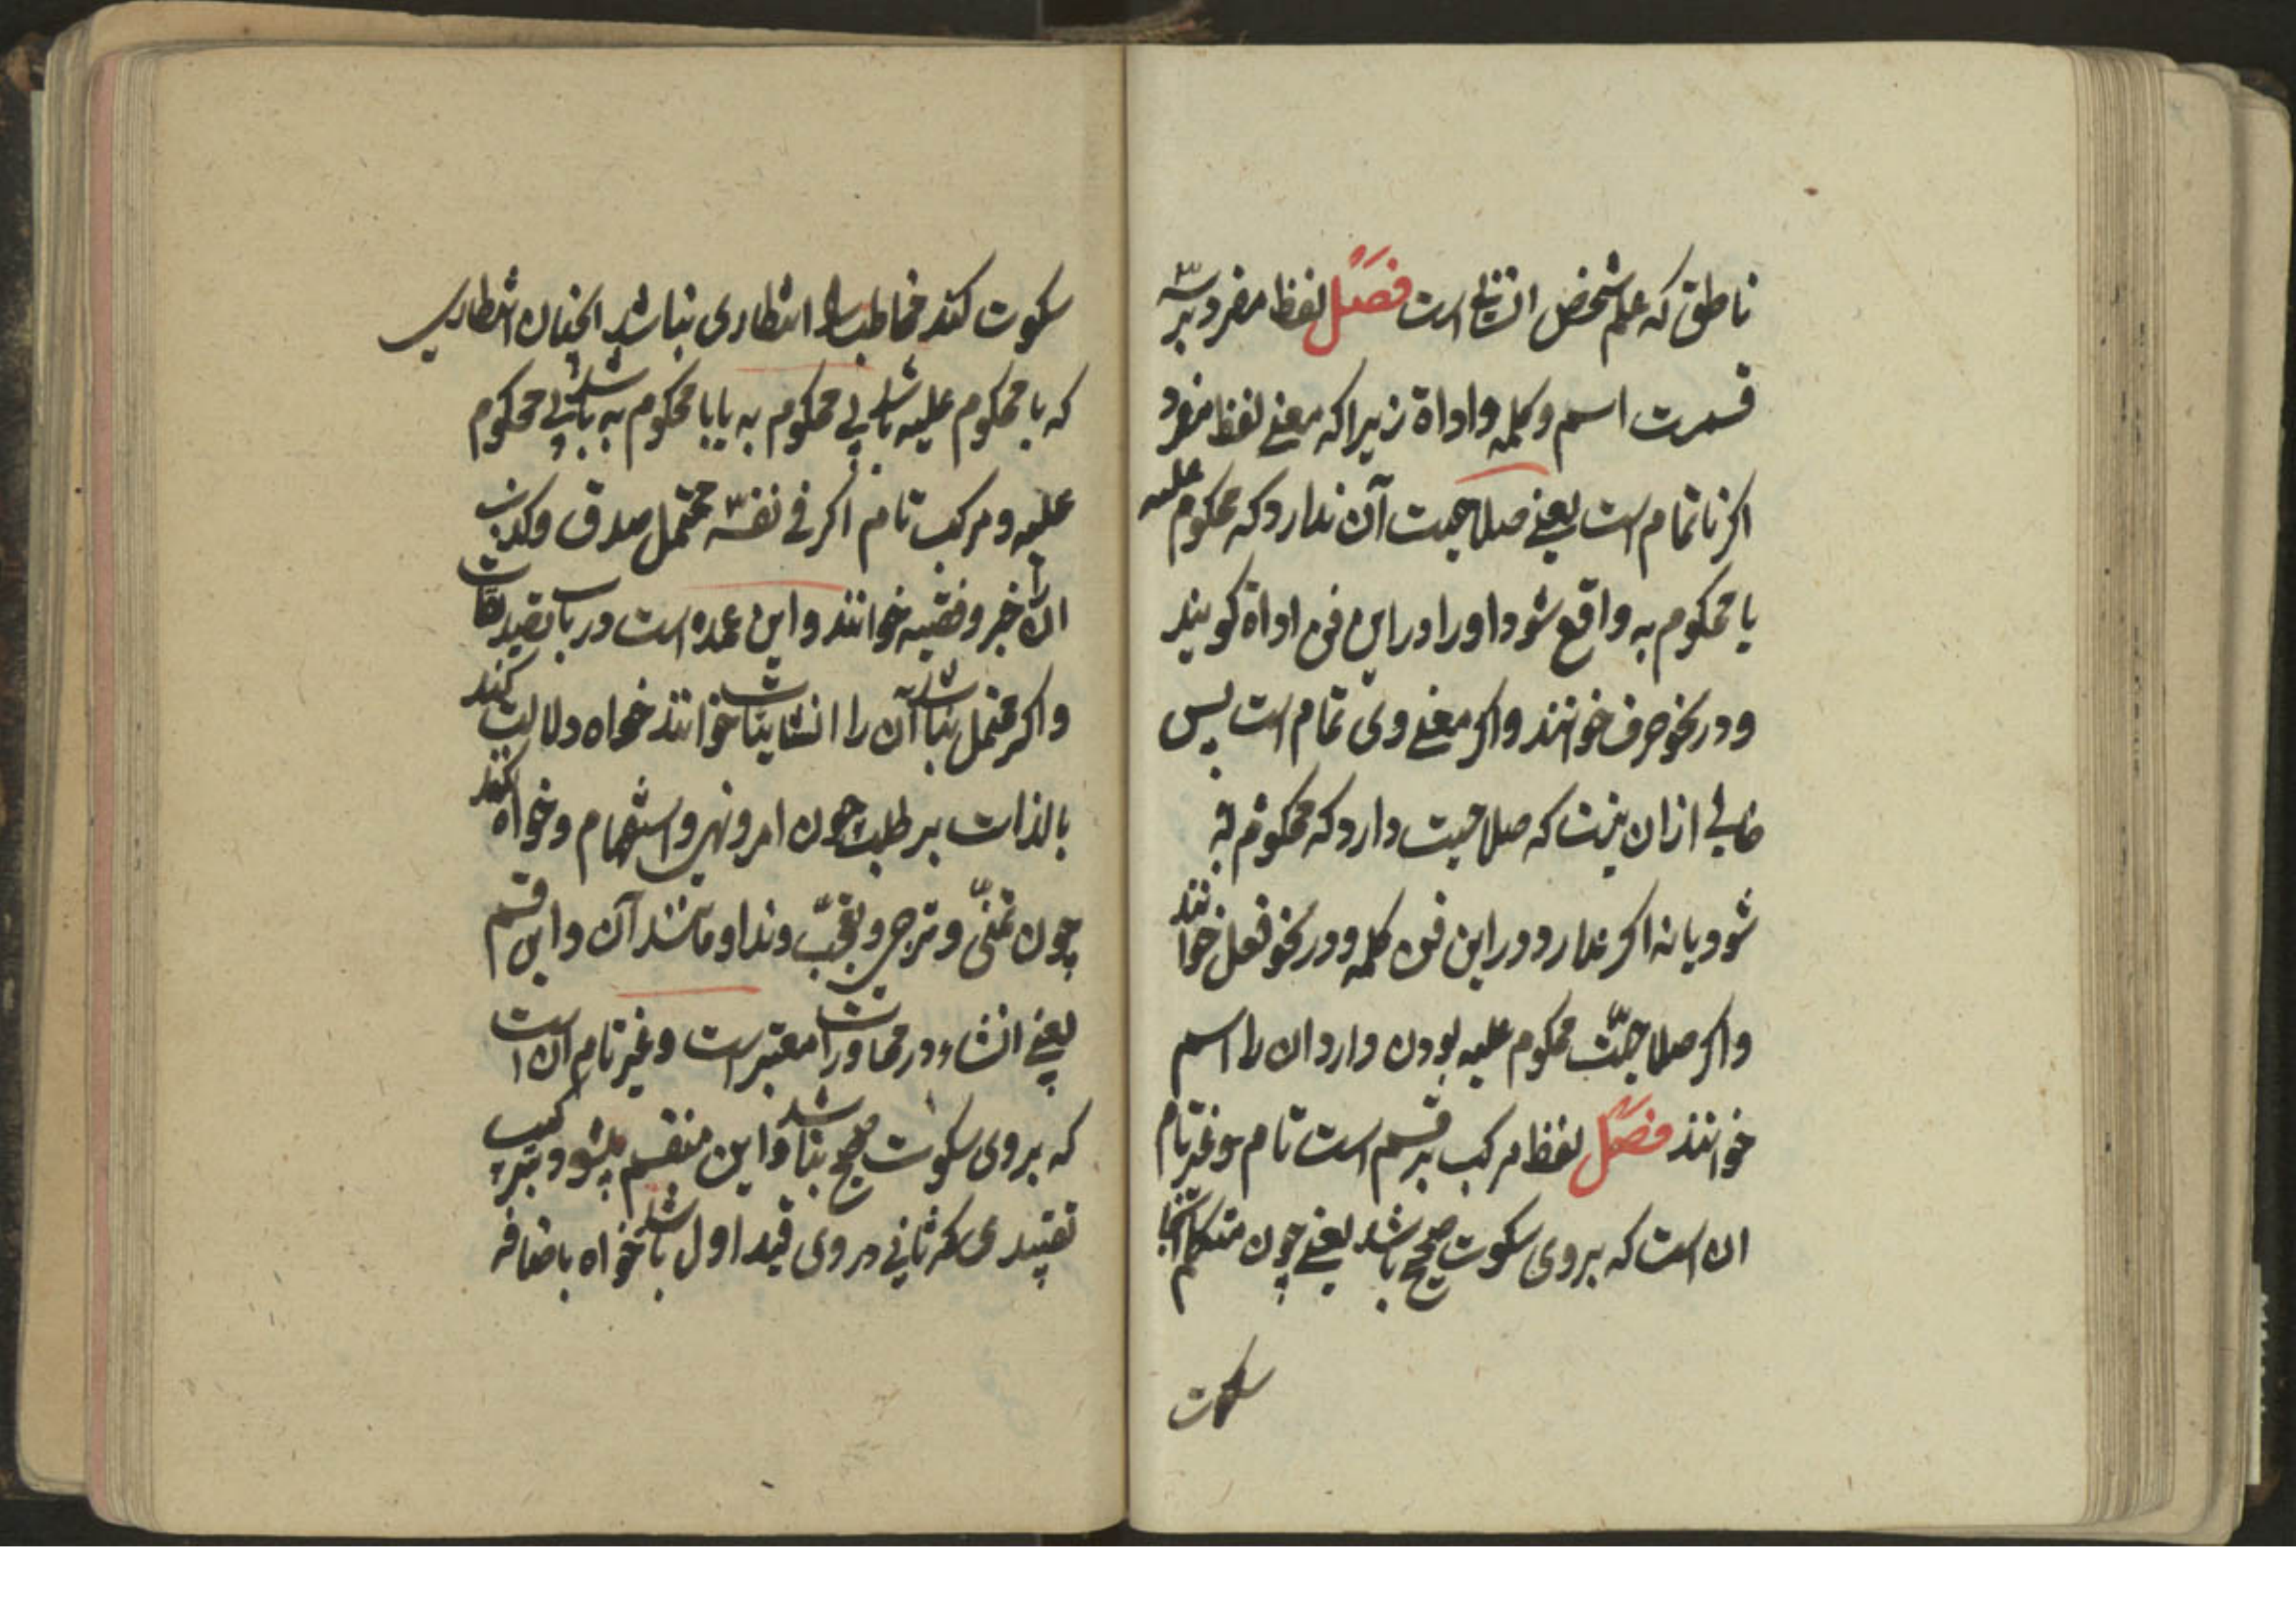 ناطق که علم شخص انسانی است فصل لفظ مفرد بر سه
قسمت اسم و کلمه و اداة زیرا که معنی لفظ مفرد
اکر ناتمام است یعنی صلاحیت آن ندارد که محکوم علیه
یا محکوم به واقع شود او را در این فن اداة کویند
و در نحو حرف خوانند و اکر معنی وی تمام است پس
خالی از ان نیست که صلاحیت دارد که محکوم به
شود یا نه اکر ندارد در این فن کلمه و در نحو فعل خوانند
و اکر صلاحیّت محکوم علیه بودن دارد ان را اسم
خوانند فصل لفظ مرکب بر قسم است تام و غیر تام
ان است که بر وی سکوت صحیح باشد یعنی چون متکلم انجا
سکوت
سکوت کند مخاطب را انتظاری نباشد انچنان انتظاری
که با محکوم علیه باشد بی محکوم به یا با محکوم به باشد بی محکوم
علیه و مرکب تام اکر فی نفسه محتمل صدق و کذب
ان را خبر و قضیه خوانند و این عمده است در باب تصدیقات
و اکر محتمل نباشد آن را انشا خوانند خواه دلالت کند
بالذات بر طلب چون امر و نهی و استفهام و خواه نکند
چون تمنّی و ترجی و تعجّب و ندا و مانند آن و این قسم
یعنی انشاء در محاورات معتبر است و غیر تام ان است
که بر وی سکوت صحیح نباشد و این منقسم میشود بترکیب
تقییدی که ثانی در وی قید اول باشد خواه باضافه